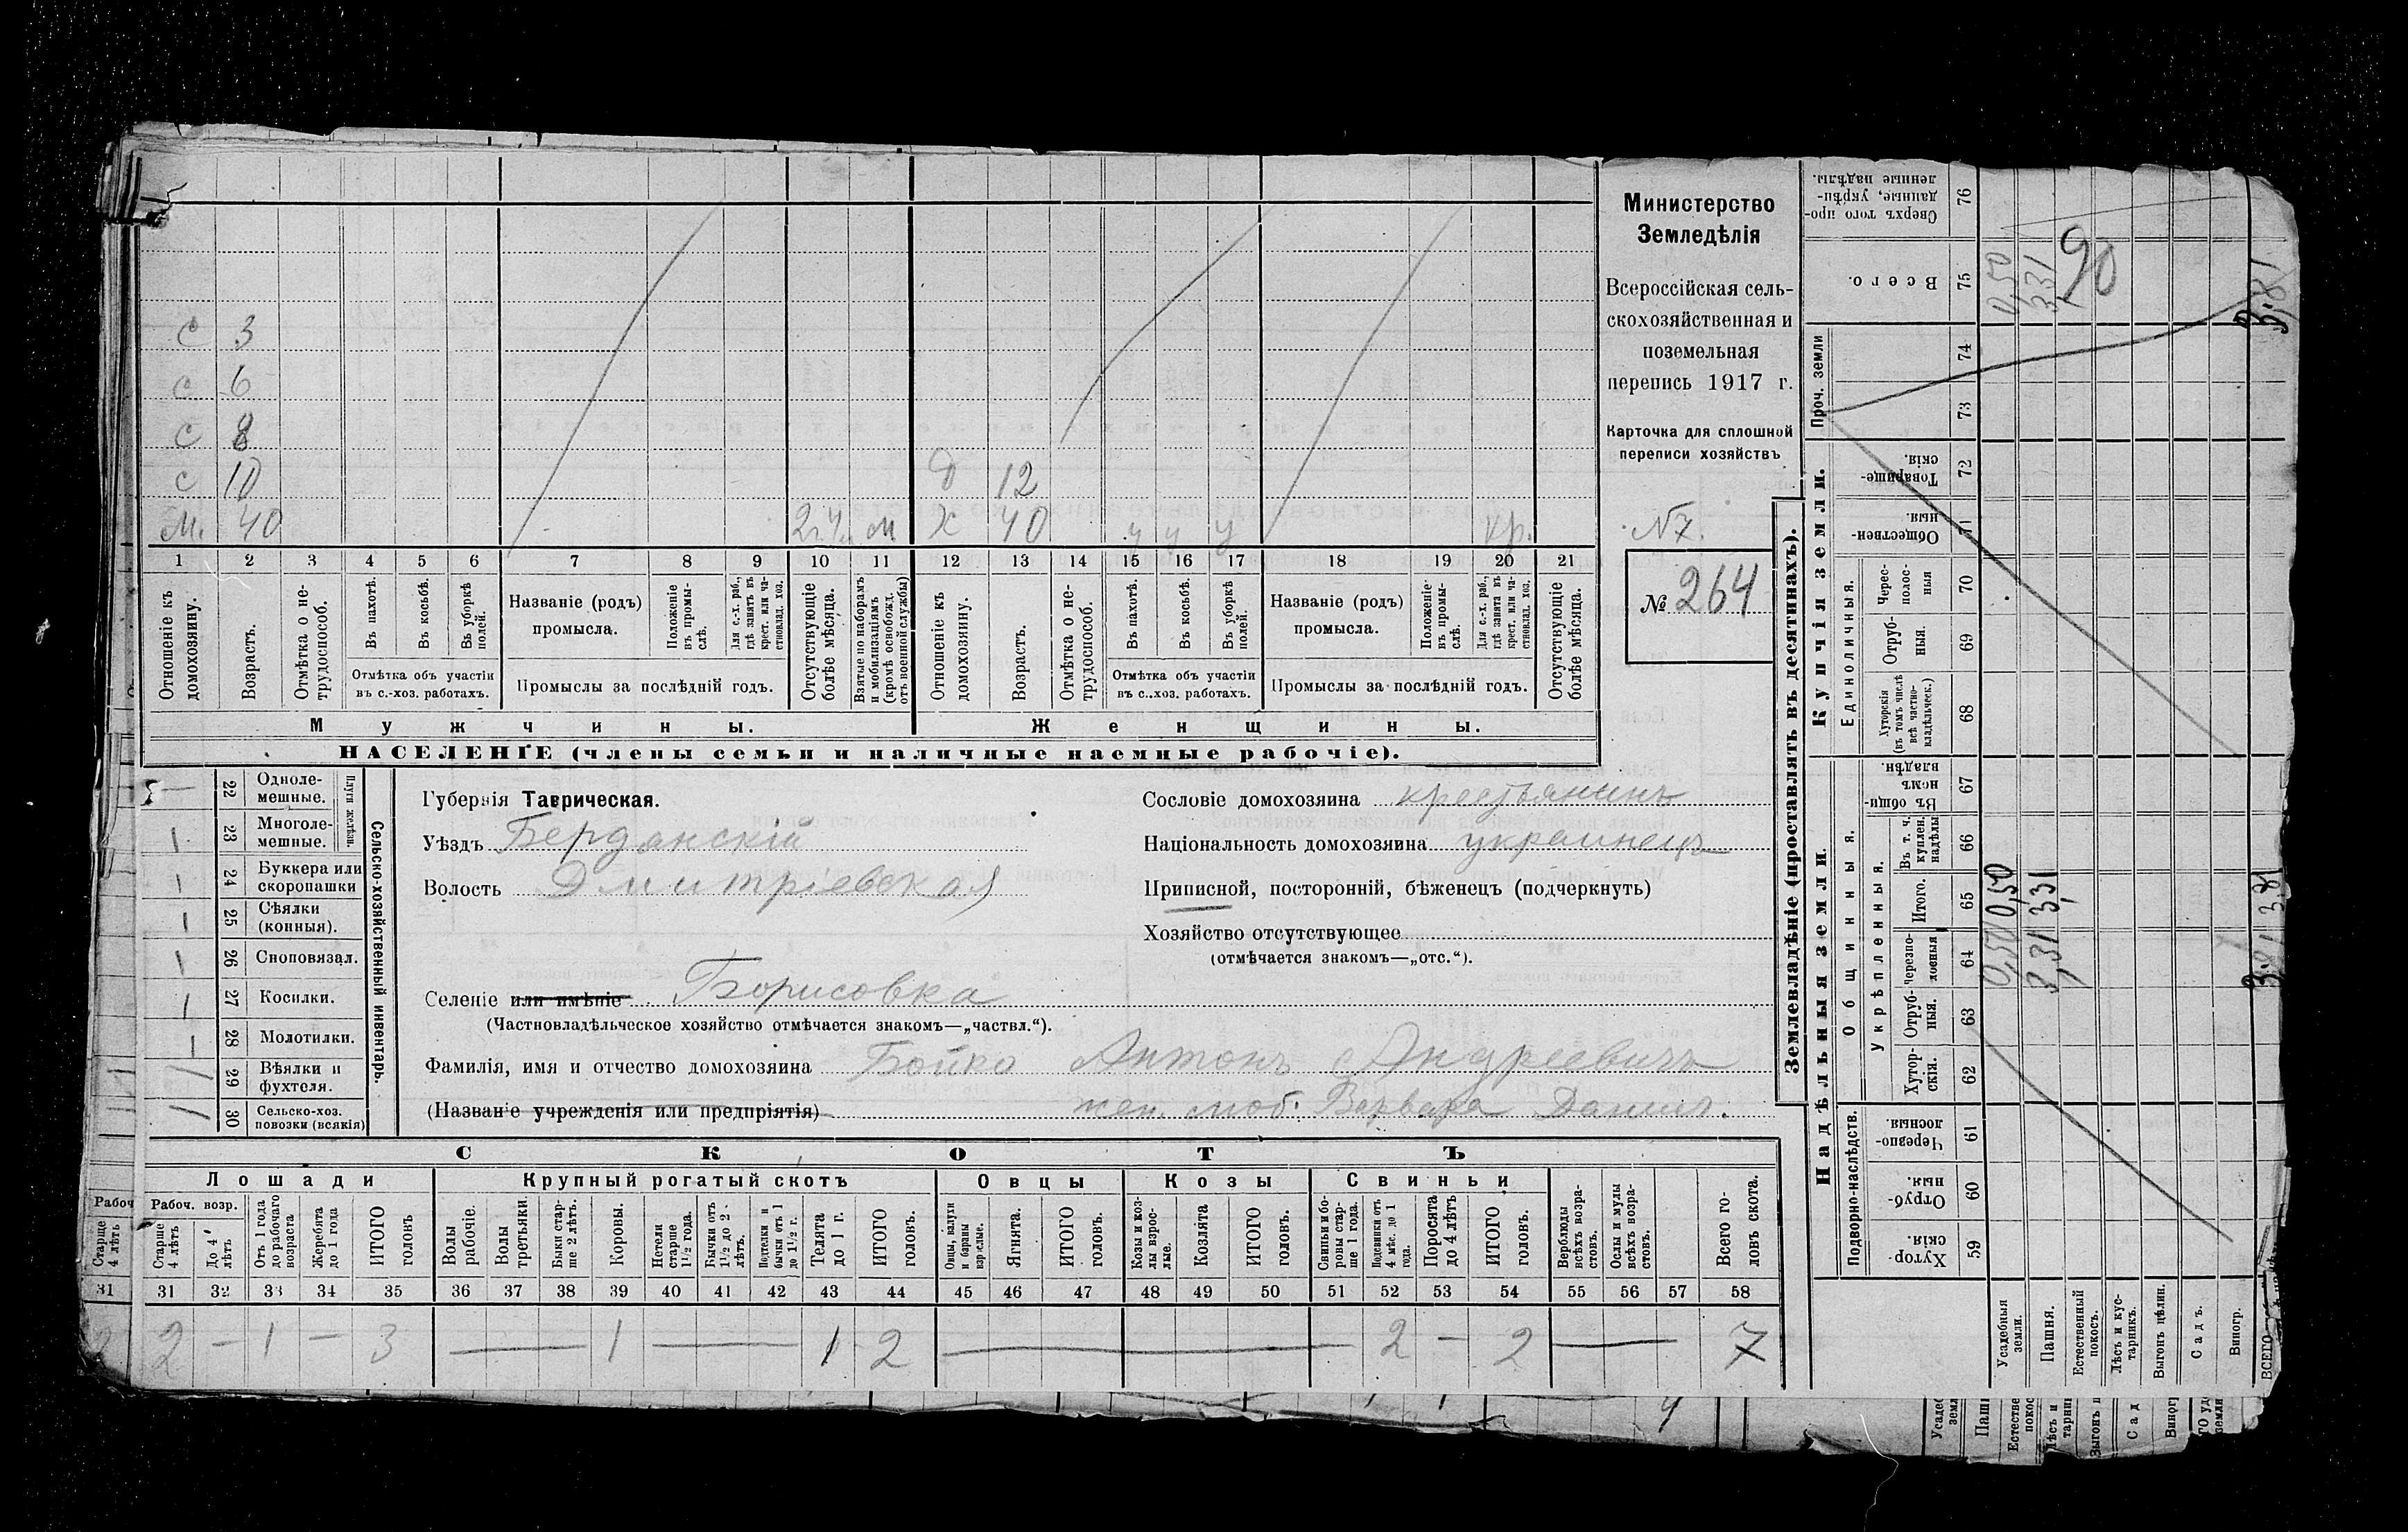 Министерство
Земледѣлія
Всероссійская сель-
скохозяйственная и
поземельная
перепись 1917 г.
Карточка для сплошной
переписи хозяйствъ
№ 7.
№ 264
с 3
с 6
с 8
с 10 д 12
м. 40 м х 40 у у у кр.
1 2 3 4 5 6 7 8 9 10 11 12 13 14 15 16 17 18 19 20 21
Отношеніе къ домохозяину.
Возрастъ.
Отмѣтка о не-трудоспособ.
Въ пахотѣ.
Въ косьбѣ.
Въ уборкѣ полей.
Отмѣтка объ участіи
въ с.-хоз. работахъ.
Названіе (родъ)
промысла.
Положеніе въ промы-слѣ.
Для с.-х. раб., гдѣ занятъ въ крест. или ча-стновлад. хоз.
Промыслы за послѣдній годъ.
Отсутствующіе болѣе мѣсяца.
Взятые по наборамъ и мобилизаціямъ (кромѣ освобожд. отъ военной службы)
Отношеніе къ домохозяину.
Возрастъ.
Отмѣтка о не-трудоспособ.
Въ пахотѣ.
Въ косьбѣ.
Въ уборкѣ полей.
Отмѣтка объ участіи
въ с..хоз. работахъ.
Названіе (родъ)
промысла.
Положеніе въ промы-слѣ.
Для с.-х. раб., гдѣ занята въ крест. или ча-стновлад. хоз.
Промыслы за послѣдній годъ.
Отсутствующіе болѣе мѣсяца.
Мужчины. Женщины.
НАСЕЛЕНІЕ (члены семьи и наличные наемные рабочіе).
Сельско-хозяйственный инвентарь.
Плуги желѣзн.
— 22 Одноле-мешные.
1 23 Многоле-мешные.
1 24 Буккера или скоропашки
1 25 Сѣялки (конныя).
1 26 Сноповязал.
1 27 Косилки.
1 28 Молотилки.
1 29 Вѣялки и фухтеля.
1 30 Сельско-хоз. повозки (всякія)
Губернія Таврическая.
Уѣздъ Бердянскій
Волость Дмитріевская
Селеніе или имѣніе Борисовка
(Частновладѣльческое хозяйство отмѣчается знакомъ—„частвл.“).
Фамилія, имя и отчество домохозяина Бойко Антонъ Андреевичъ
(Названіе учрежденія или предпріятія) жен. моб. Варвара Данил.
Сословіе домохозяина крестьянинъ
Національность домохозяина украинецъ
Приписной, посторонній, бѣженецъ (подчеркнуть)
Хозяйство отсутствующее
(отмѣчается знакомъ—„отс.“).
СКОТЪ
Лошади Крупный рогатый скотъ Овцы Козы Свиньи
Рабоч. возр.
Старше 4 лѣтъ
До 4 лѣтъ
Отъ 1 года до рабочаго возраста
Жеребята до 1 года
ИТОГО головъ
Волы рабочіе.
Волы третьяки.
Быки стар-ше 2 лѣтъ.
Коровы.
Нетели старше 1½ года.
Бычки отъ 1½ до 2 лѣтъ.
Подтелки и бычки отъ 1 до 1½ г.
Телята до 1 г.
ИТОГО головъ.
Овцы, валухи и бараны взрослые.
Ягнята.
ИТОГО головъ.
Козы и коз-лы взрос-лые.
Козлята
ИТОГО головъ.
Свиньи и бо-ровы стар-ше 1 года.
Подсвинки отъ 4 мѣс. до 1 года.
Поросята до 4 лѣтъ
ИТОГО головъ.
Верблюды всѣхъ возра-стовъ.
Ослы и мулы всѣхъ возра-стовъ.
Всего го-ловъ скота.
31 32 33 34 35 36 37 38 39 40 41 42 43 44 45 46 47 48 49 50 51 52 53 54 55 56 57 58
2 — 1 — 3 — 1 — 1 2 — 2 — 2 — 7
Рабоч
Старше 4 лѣтъ
31
Землевладѣніе (проставлять въ десятинахъ).
Надѣльныя земли. Купчія земли.
Подворно-наслѣдств.
Общинныя.
Укрѣпленныя.
Единоличныя.
Проч. земли
Хутор-скія. 59
Отруб-ныя. 60
Черезпо-лосныя. 61
Хутор-скія. 62
Отруб-ныя. 63
Черезпо-лосныя 64
Итого. 65
Въ т. ч. куплен. надѣлы 66
Въ общин-номъ владѣн. 67
Хуторскія (въ томъ числѣ всѣ частно-владѣльческ.) 68
Отруб-ныя. 69
Черес-полос-ныя 70
Обществен-ныя. 71
Товарище-скія. 72
73
74
Всего. 75
Сверхъ того про-данные, укрѣп-ленные надѣлы. 76
Усадебныя земли. 0,50 0,50 0,50
Пашня. 3,31 3,31 3,31
Естественный покосъ.
Лѣсъ и кус-тарникъ.
Выгонъ цѣлин.
Садъ.
Виногр.
ВСЕГО 3,81 3,81 3,81
90